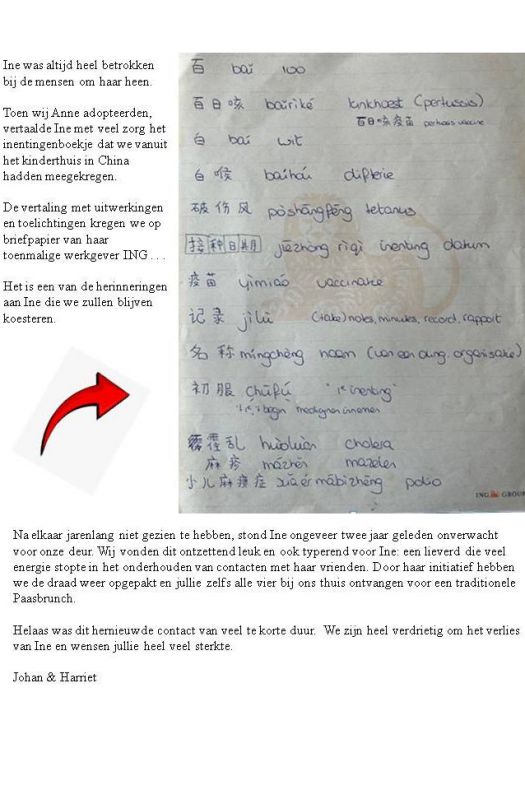 Ine was altijd heel betrokken
bij de mensen om haar heen.
Toen wij Anne adopteerden,
vertaalde Ine met veel zorg het
inentingenboekje dat we vanuit
het kinderthuis in China
hadden meegekregen.
De vertaling met uitwerkingen
en toelichtingen kregen we op
briefpapier van haar
toenmalige werkgever ING . . .
Het is een van de herinneringen
aan Ine die we zullen blijven
koesteren.
百 bai 100
百日咳 bǎiriké kinkhoest (pertussis)
百日咳疫苗 vaccine
白 bai wit
白喉 baihóu difterie
破伤风 pòshāngfēng tetanus
接种日期 jiēzhòng rìqi inenting datum
疫苗 yìmiáo vaccinatie
记录 jìlù (take) notes, minutes, record, rapport
名称 míngchēng naam (van een organisatie)
初服 chūfú "1e inenting"
1e, begin medicijnen innemen
霍乱 huòluàn cholera
麻疹 mázhěn mazelen
小儿麻痹症 xiǎo ér mábìzhèng polio
ING GROUP
Na elkaar jarenlang niet gezien te hebben, stond Ine ongeveer twee jaar geleden onverwacht
voor onze deur. Wij vonden dit ontzettend leuk en ook typerend voor Ine: een lieverd die veel
energie stopte in het onderhouden van contacten met haar vrienden. Door haar initiatief hebben
we de draad weer opgepakt en jullie zelfs alle vier bij ons thuis ontvangen voor een traditionele
Paasbrunch.
Helaas was dit hernieuwde contact van veel te korte duur. We zijn heel verdrietig om het verlies
van Ine en wensen jullie heel veel sterkte.
Johan & Harriet